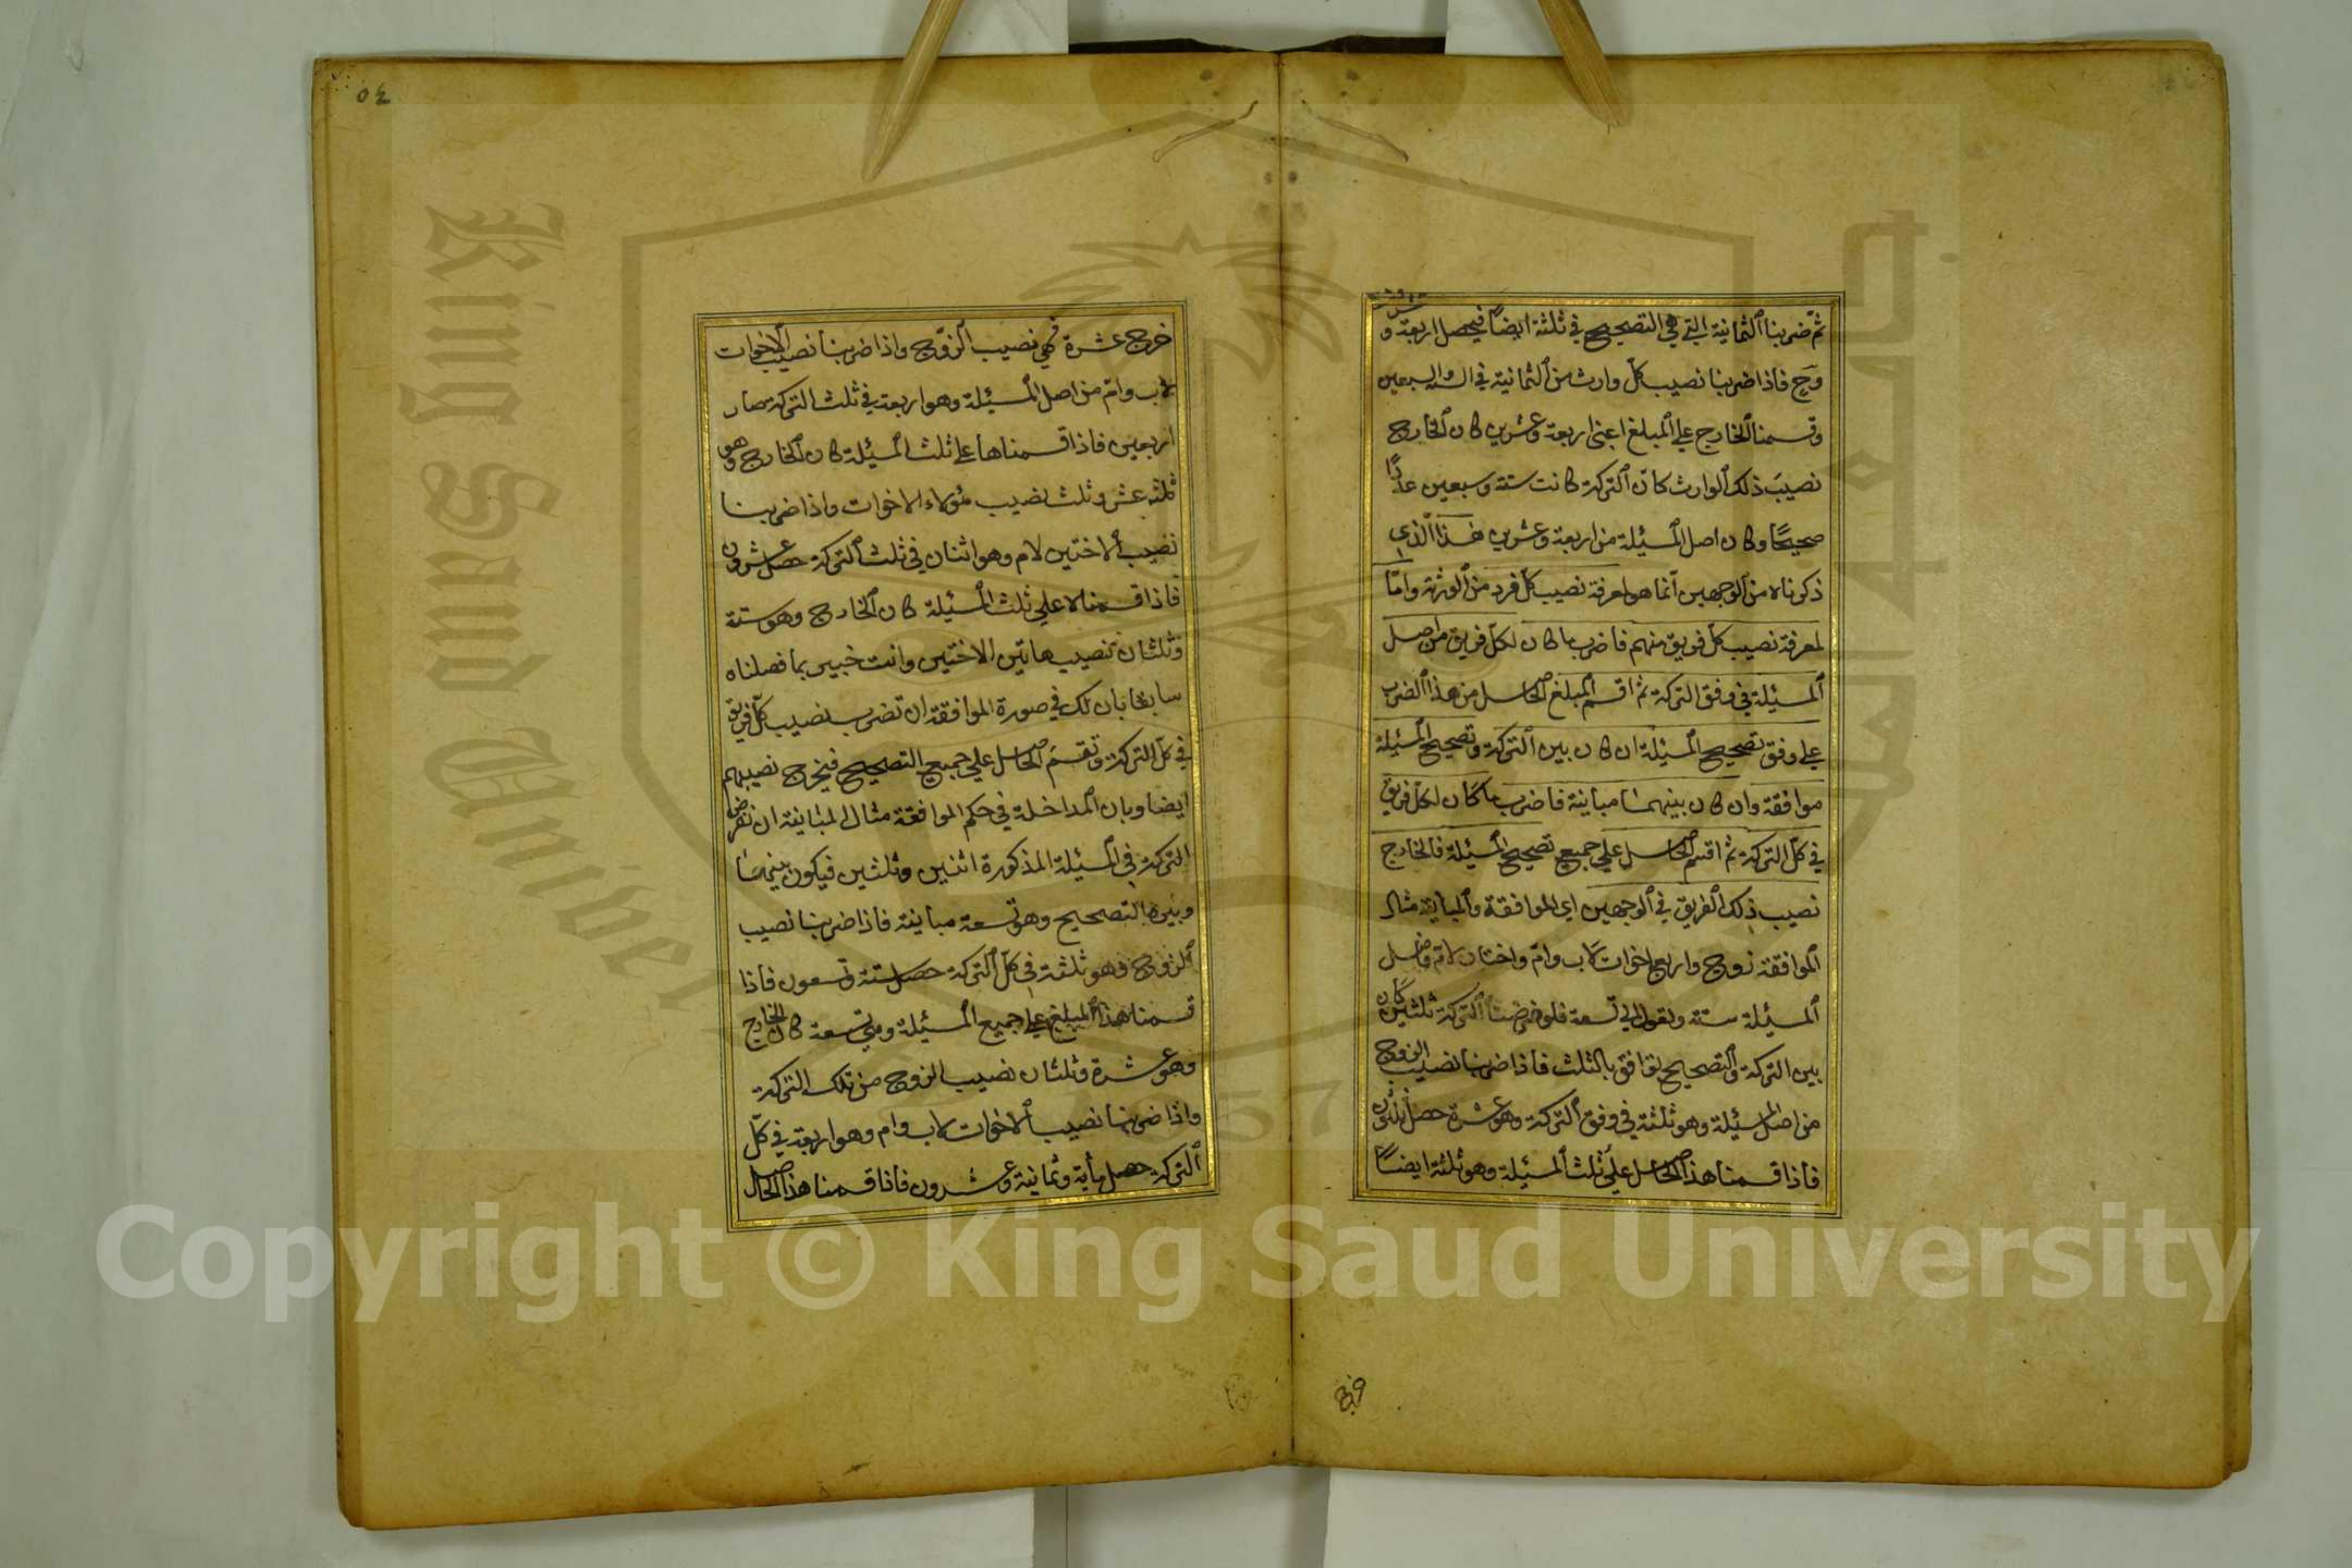 ثم ضربنا الثمانية التي هي التصحيح في ثلثة ايضا فيحصل اربعة و
عشرون
وح فاذا ضربنا نصيب كل وارث من الثمانية في الستة والسبعين
وقسمنا الخارج على المبلغ اعني اربعة وعشرين كان الخارج
نصيب ذلك الوارث كان التركة كانت ستة وسبعين عددًا
صحيحًا وكان اصل المسئلة من اربعة وعشرين هذا الذي
ذكرناه من الوجهين انما هو لمعرفة نصيب كل فرد من الورثة واما
لمعرفة نصيب كل فريق منهم فاضرب ما كان لكل فريق من اصل
المسئلة في وفق التركة ثم اقسم المبلغ الحاصل من هذا الضرب
على وفق تصحيح المسئلة ان كان بين التركة وتصحيح المسئلة
موافقة وان كان بينهما مباينة فاضرب ما كان لكل فريق
في كل التركة ثم اقسم الحاصل على جميع تصحيح المسئلة فالخارج
نصيب ذلك الفريق في الوجهين اي الموافقة والمباينة مثال
الموافقة زوج واربع اخوات لاب وام واختان لام فاصل
المسئلة ستة وتعول الى تسعة فلو فرضنا التركة ثلثين كان
بين التركة والتصحيح توافق بالثلث فاذا ضربنا نصيب الزوج
من اصل المسئلة وهو ثلثة في وفق التركة وهو عشرة حصل ثلثون
فاذا قسمنا هذا الحاصل على ثلث المسئلة وهو ثلثة ايضًا
خرج
٥٤
خرج عشرة فهي نصيب الزوج واذا ضربنا نصيب الاخوات
لاب وام من اصل المسئلة وهو اربعة في ثلث التركة صار
اربعين فاذا قسمناها على ثلث المسئلة كان الخارج وهو
ثلثة عشر وثلث نصيب هؤلاء الاخوات واذا ضربنا
نصيب الاختين لام وهو اثنان في ثلث التركة حصل عشرون
فاذا قسمناه على ثلث المسئلة كان الخارج وهو ستة
وثلثان نصيب هاتين الاختين وانت خبير بما فصلناه
سابقا بان لك في صورة الموافقة ان تضرب نصيب كل فريق
في كل التركة وتقسم الحاصل على جميع التصحيح فيخرج نصيبهم
ايضا وبان المداخلة في حكم الموافقة مثال المباينة ان نفرض
التركة في المسئلة المذكورة اثنين وثلثين فيكون بينهما
وبين التصحيح وهو تسعة مباينة فاذا ضربنا نصيب
الزوج وهو ثلثة في كل التركة حصل ستة وتسعون فاذا
قسمنا هذا المبلغ على جميع المسئلة وهي تسعة كان الخارج
وهو عشرة وثلثان نصيب الزوج من تلك التركة
واذا ضربنا نصيب الاخوات لاب وام وهو اربعة في كل
التركة حصل مأية وثمانية وعشرون فاذا قسمنا هذا الحاصل
King Saud University
1957
Copyright © King Saud University